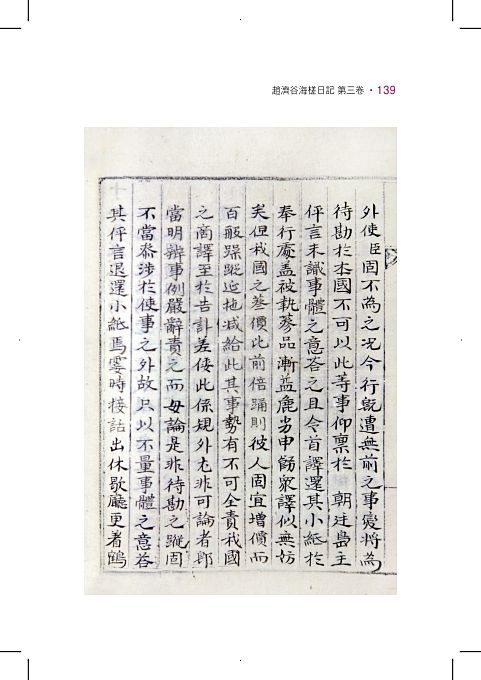 趙濟谷海槎日記 第三卷 · 139
外使臣固不為之况今行旣遭無前之事變將為
待勘於本國不可以此等事仰禀於 朝廷島主
伻言未識事體之意答之且令首譯還其小紙於
奉行處盖被執蔘品漸益麁劣申飭衆譯似無妨
矣但我國之蔘價比前倍踊則彼人固宜增價而
百般躁蹤迤拖减給此其事勢有不可全責我國
之商譯至於告訃差倭此係規外尤非可論者郎
當明辨事例嚴辭責之而毋論是非待勘之蹤固
不當叅涉於使事之外故只以不量事體之意答
其伻言退還小紙焉霎時接話出休歇廳更着鶴